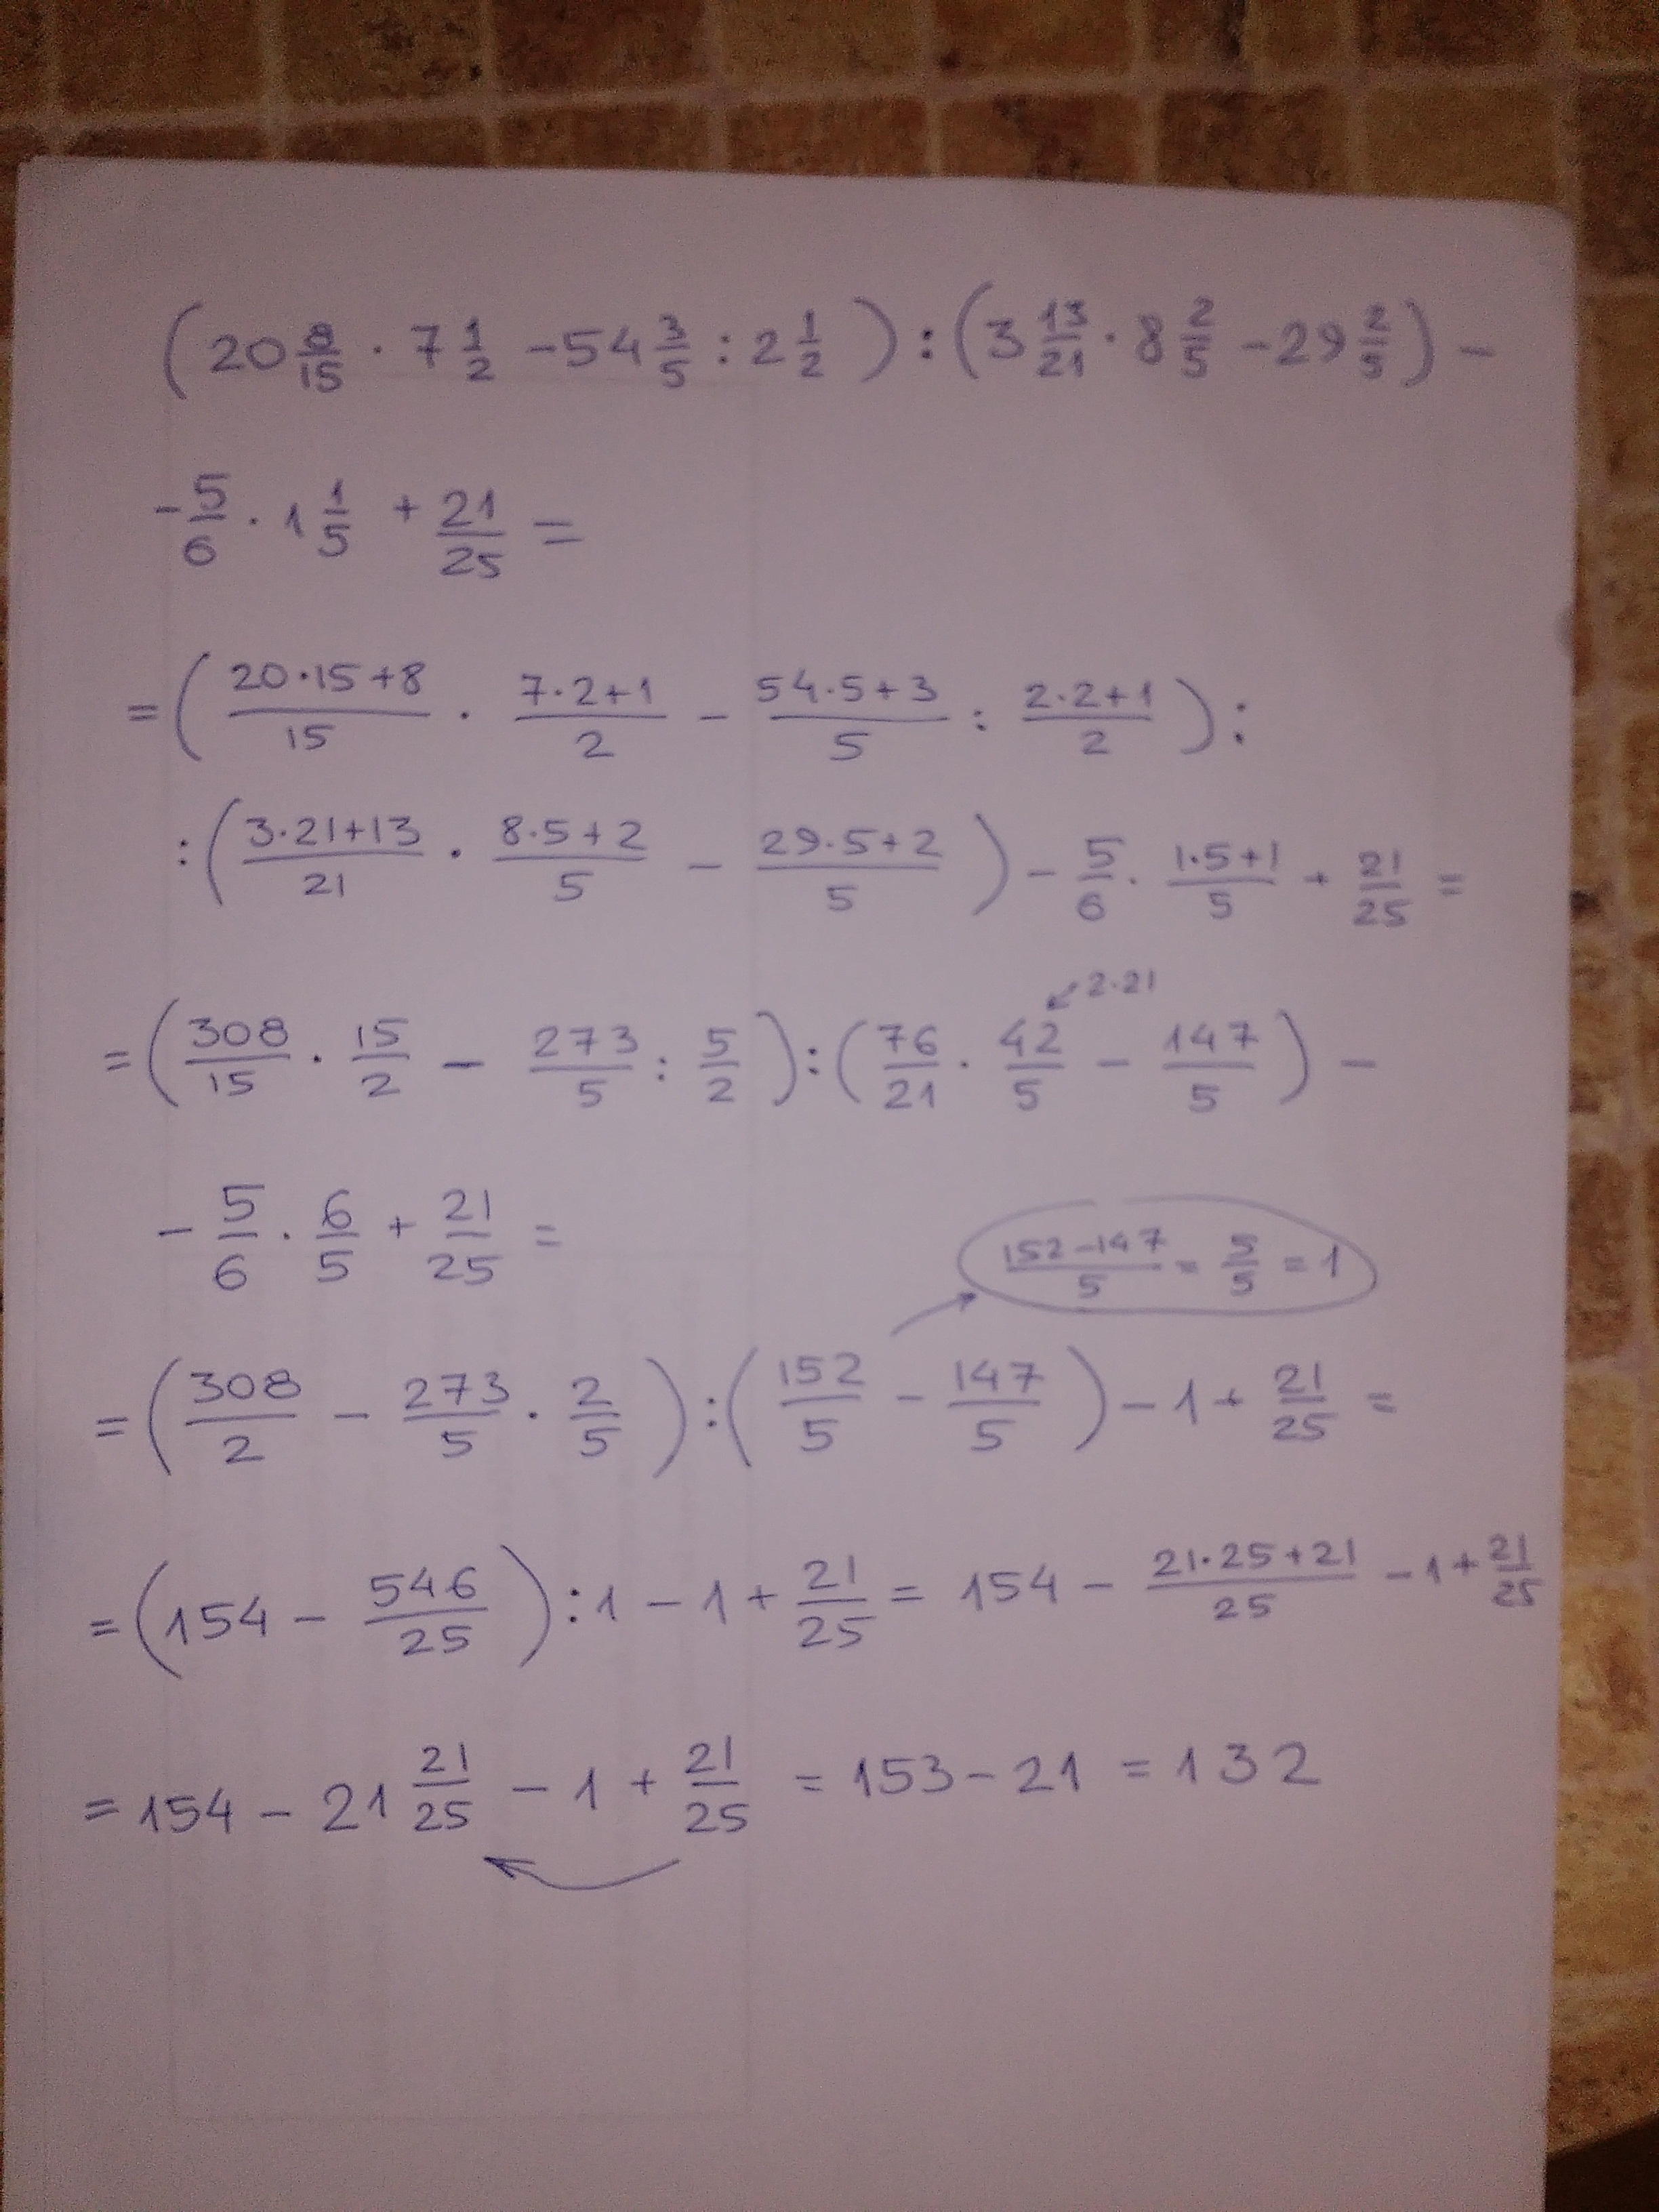 (20 8/15 · 7 1/2 - 54 3/5 : 2 1/2) : (3 13/21 · 8 2/5 - 29 2/5) -
- 5/6 · 1 1/5 + 21/25 =
= ((20·15+8)/15 · (7·2+1)/2 - (54·5+3)/5 : (2·2+1)/2) :
: ((3·21+13)/21 · (8·5+2)/5 - (29·5+2)/5) - 5/6 · (1·5+1)/5 + 21/25 =
↙ 2·21
= (308/15 · 15/2 - 273/5 : 5/2) : (76/21 · 42/5 - 147/5) -
- 5/6 · 6/5 + 21/25 =
(152-147)/5 = 5/5 = 1
= (308/2 - 273/5 · 2/5) : (152/5 - 147/5) - 1 + 21/25 =
= (154 - 546/25) : 1 - 1 + 21/25 = 154 - (21·25+21)/25 - 1 + 21/25
= 154 - 21 21/25 - 1 + 21/25 = 153 - 21 = 132